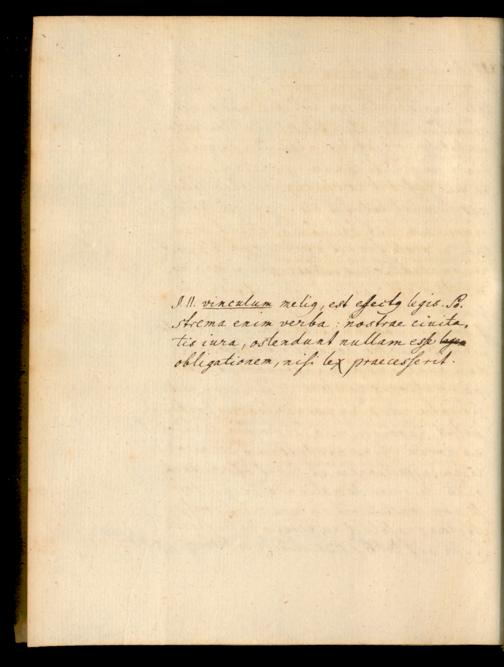 § 11. vinculum meliꝯ, est effectꝯ legis. Po-
strema enim verba: nostrae civita-
tis iura, ostendunt nullam esse legem
obligationem, nisi lex praecesserit.